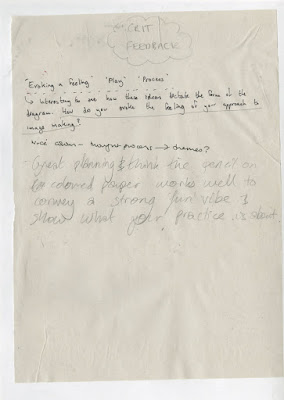 CRIT
FEEDBACK
"Evoking a feeling" "Play" "Process"
↳ interesting to see how these ideas dictate the form of the
diagram. How do you evoke the feeling of your approach to
image making?
nice colours - → themes?
Great planning & think the pencil on
coloured paper works well to
convey a strong fun vibe &
show what your practice is about.